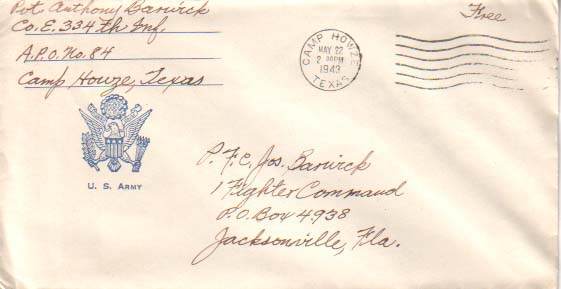 Pvt Anthony Barwick
Co. E. 334th Inf.
A.P.O. No. 84
Camp Howze, Texas
Free
CAMP HOWZE
MAY 22
2 30 PM
1943
TEXAS
U. S. ARMY
P.F.C. Jos. Barwick
1 Fighter Command
P.O. Box 4938
Jacksonville, Fla.